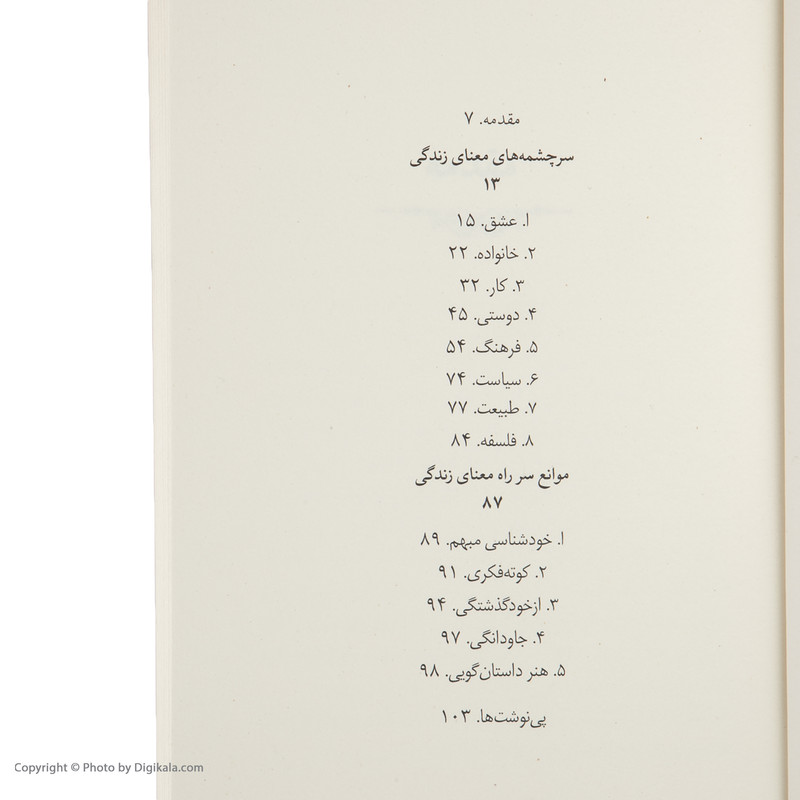 مقدمه. ۷
سرچشمه‌های معنای زندگی
۱۳
۱. عشق. ۱۵
۲. خانواده. ۲۲
۳. کار. ۳۲
۴. دوستی. ۴۵
۵. فرهنگ. ۵۴
۶. سیاست. ۷۴
۷. طبیعت. ۷۷
۸. فلسفه. ۸۴
موانع سر راه معنای زندگی
۸۷
۱. خودشناسی مبهم. ۸۹
۲. کوته‌فکری. ۹۱
۳. ازخودگذشتگی. ۹۴
۴. جاودانگی. ۹۷
۵. هنر داستان‌گویی. ۹۸
پی‌نوشت‌ها. ۱۰۳
Copyright © Photo by Digikala.com